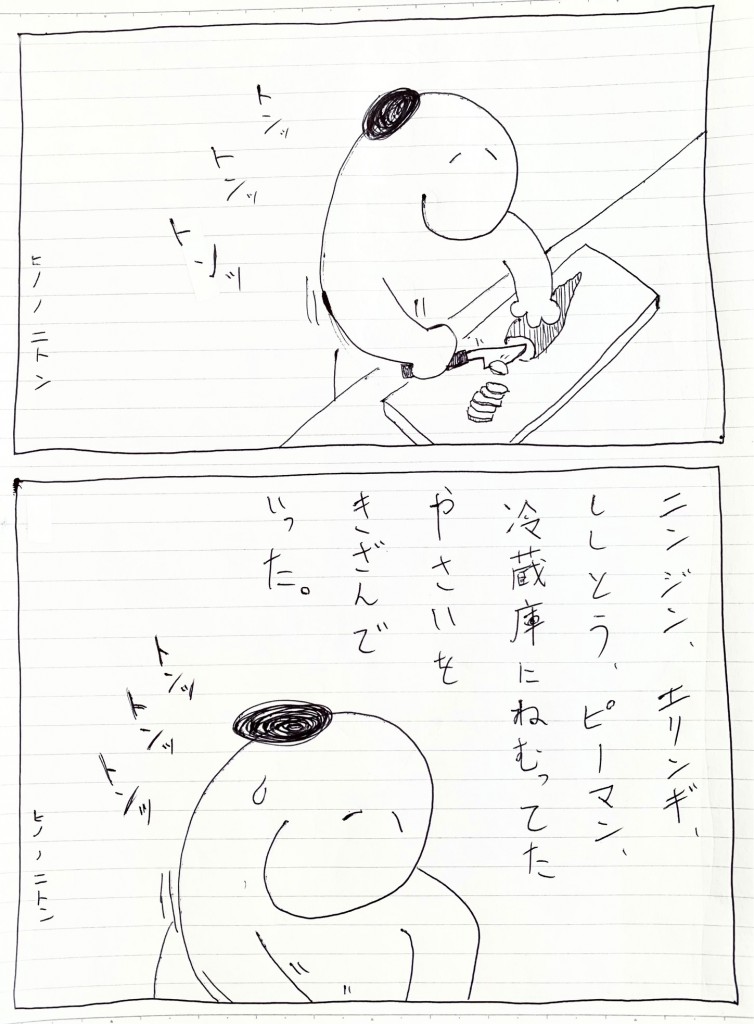 トンッ
トンッ
トンッ
ヒノノニトン
ニンジン、エリンギ、
ししとう、ピーマン、
冷蔵庫にねむってた
やさいを
きざんで
いった。
トンッ
トンッ
トンッ
ヒノノニトン